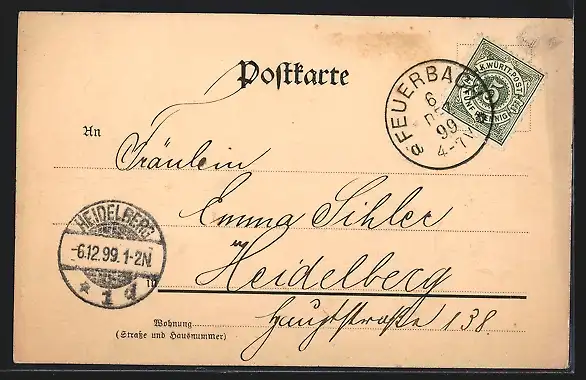 Postkarte
K.WÜRTT.POST
FÜNF PFENNIG
5
FEUERBACH
6
DEZ
99
4-7N
a
An
Fräulein
Emma Sihler
HEIDELBERG
-6.12.99.1-2N
* 1 d
in Heidelberg
Hauptstraße 138.
Wohnung
(Straße und Hausnummer)